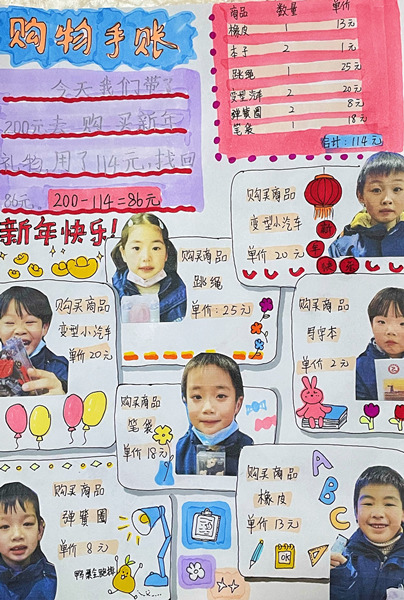 购物手账
今天我们带了
200元去购买新年
礼物,用了114元,找回
86元. 200-114=86元
新年快乐!
商品 数量 单价
橡皮 1 13元
本子 2 1元
跳绳 1 25元
变型汽车 2 20元
弹簧圈 2 8元
笔袋 1 18元
合计:114元
购买商品
变型小汽车
单价20元
新年快乐
购买商品
跳绳
单价:25元
购买商品
变型小汽车
单价20元
购买商品
单价2元
购买商品
笔袋
单价18元
购买商品
橡皮
单价13元
A
B
C
OK
购买商品
弹簧圈
单价8元